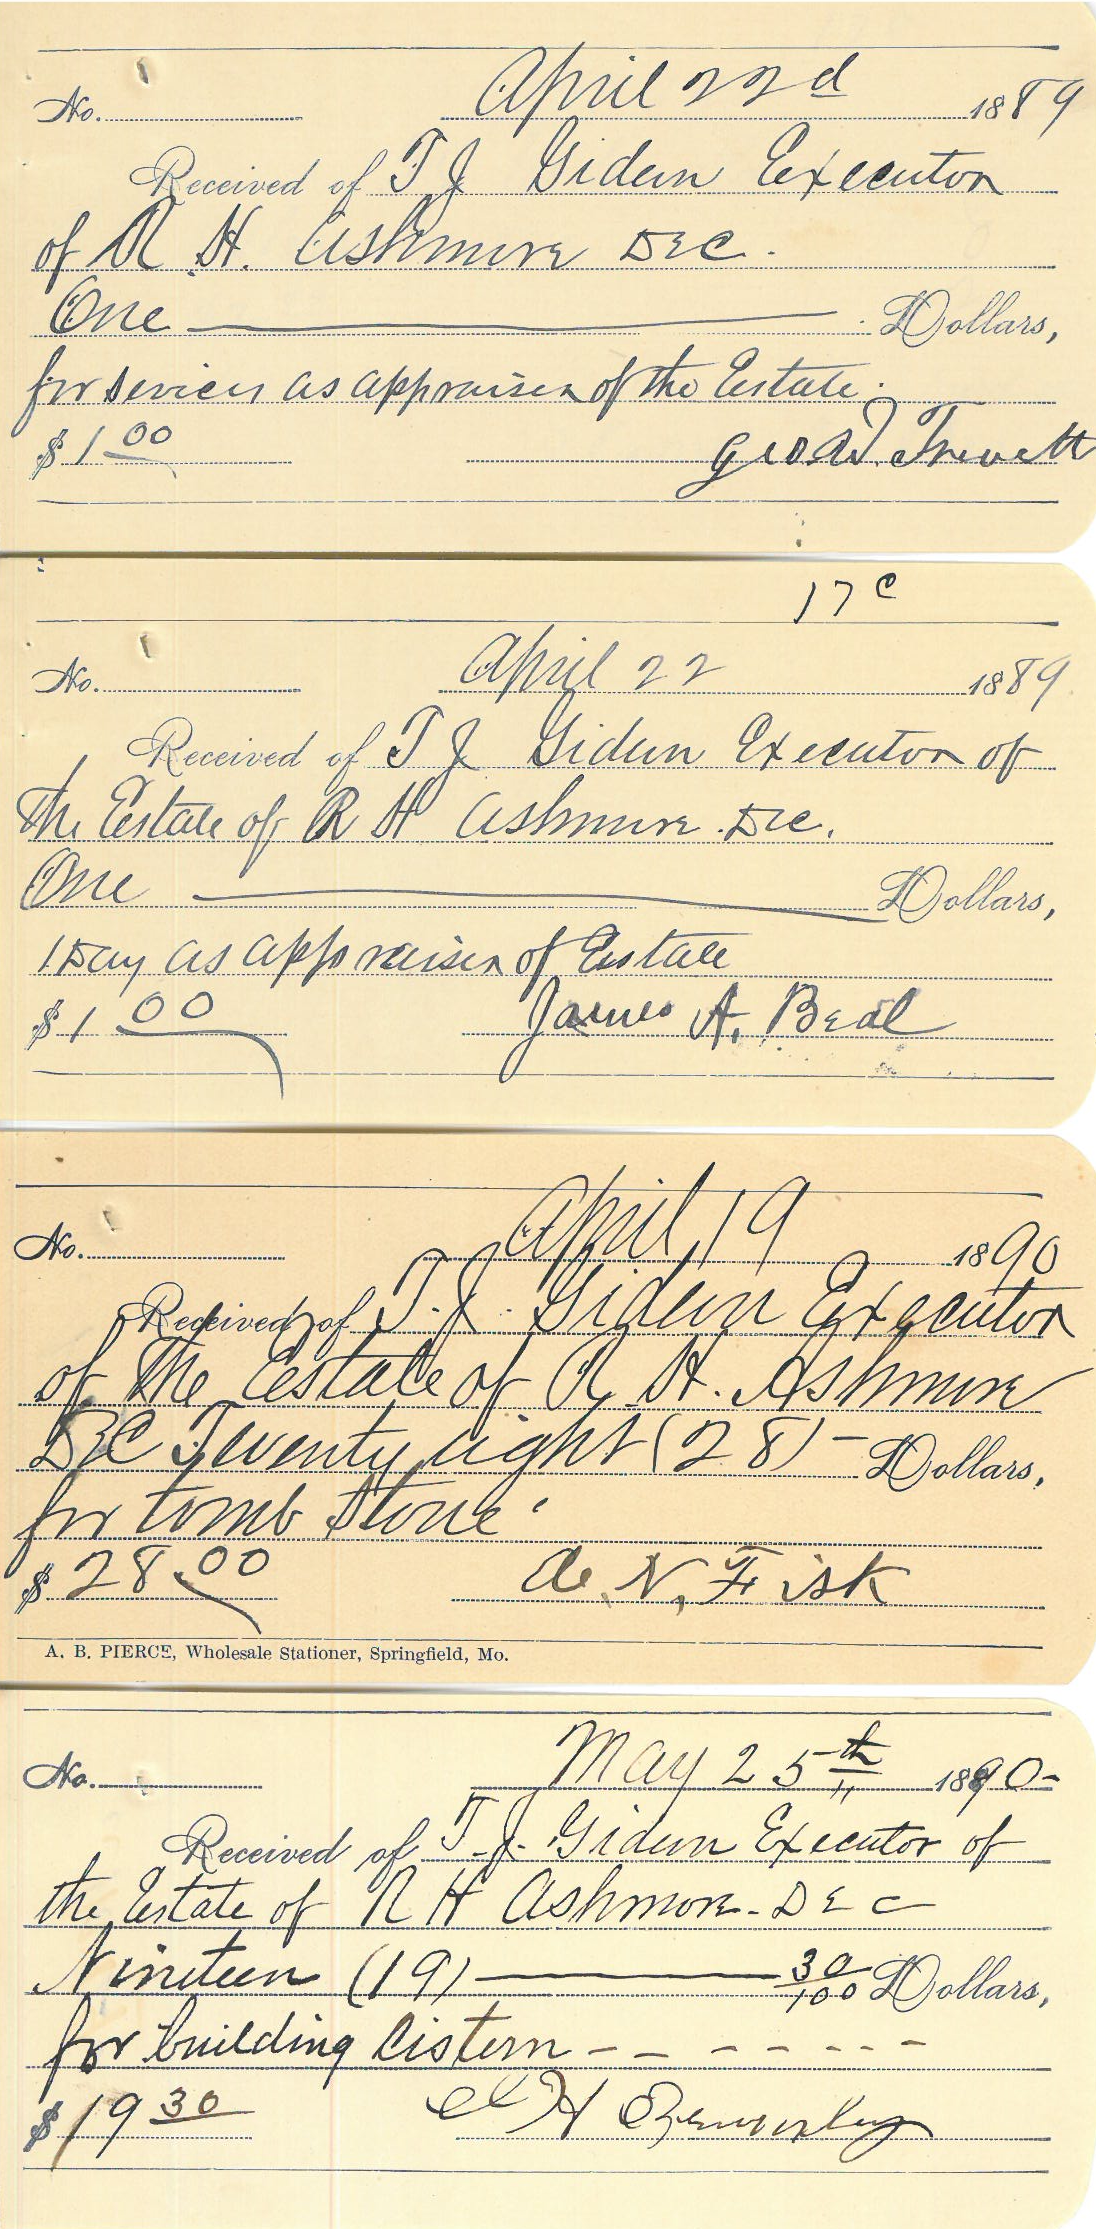 No. April 22d 1889
Received of T J Gideon Executor
of R. H. Ashmore DEC.
One Dollars,
for Sevices as appraiser of the Estate.
$ 1 00 Geo Trevett
17 c
No. April 22 1889
Received of T J Gideon Executor of
The Estate of R H Ashmore. Dec.
One Dollars,
1 Day as appraiser of Estate
$ 1 00 James A. Beal
No. April 19 1890
Received of T. J. Gideon Executor
of The Estate of R. H. Ashmore
DEC Twenty eight (28) - Dollars,
for tomb Stone
$ 28.00 N. Fisk
A. B. PIERCE, Wholesale Stationer, Springfield, Mo.
No. May 25th 1890-
Received of T. J. Gideon Executor of
the Estate of R H Ashmore - DEC
Nineteen (19) 30/100 Dollars,
for building Cistern - - - - - - -
$ 19 30 H